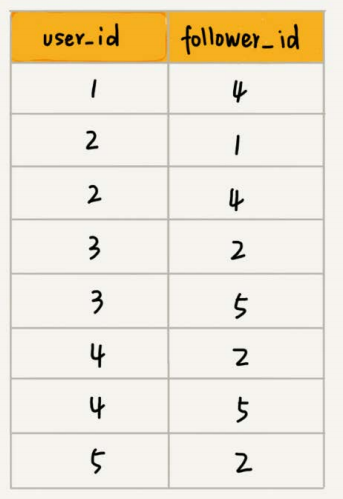 user_id follower_id
1 4
2 1
2 4
3 2
3 5
4 2
4 5
5 2